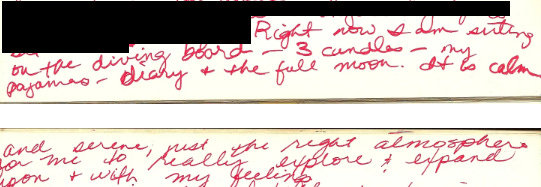 Right now I am sitting
on the diving board – 3 candles – my
pajamas – diary & the full moon. It is calm
and serene, just the right atmosphere
for me to really explore & expand
upon & with my feeling